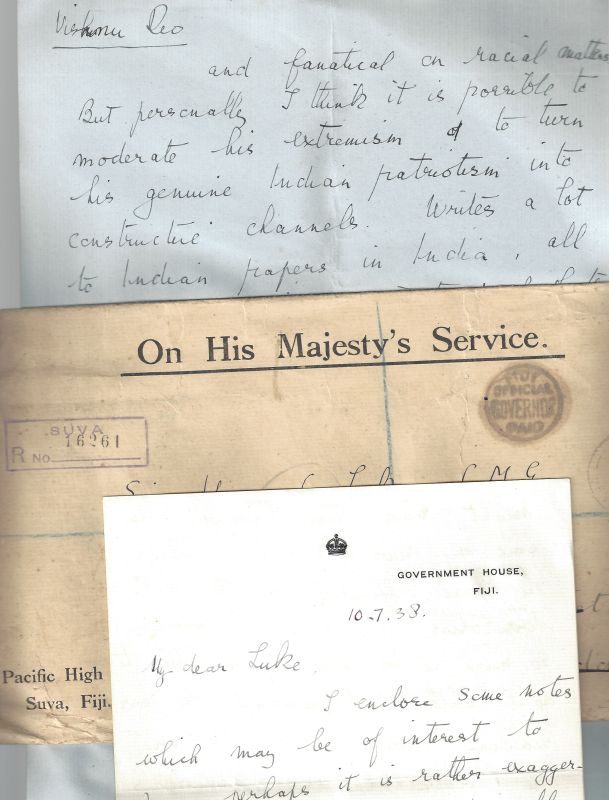 Vishnu Deo
and fanatical on racial matters
But personally I think it is possible to
moderate his extremism & to turn
his genuine Indian patriotism into
constructive channels. Writes a lot
to Indian papers in India, all
On His Majesty's Service.
FIJI
OFFICIAL
GOVERNOR
PAID
SUVA
R No 16261
C.M.G.
GOVERNMENT HOUSE,
FIJI.
10.7.38.
My dear Luke,
I enclose some notes
which may be of interest to
perhaps it is rather exagger-
Pacific High
Suva, Fiji.